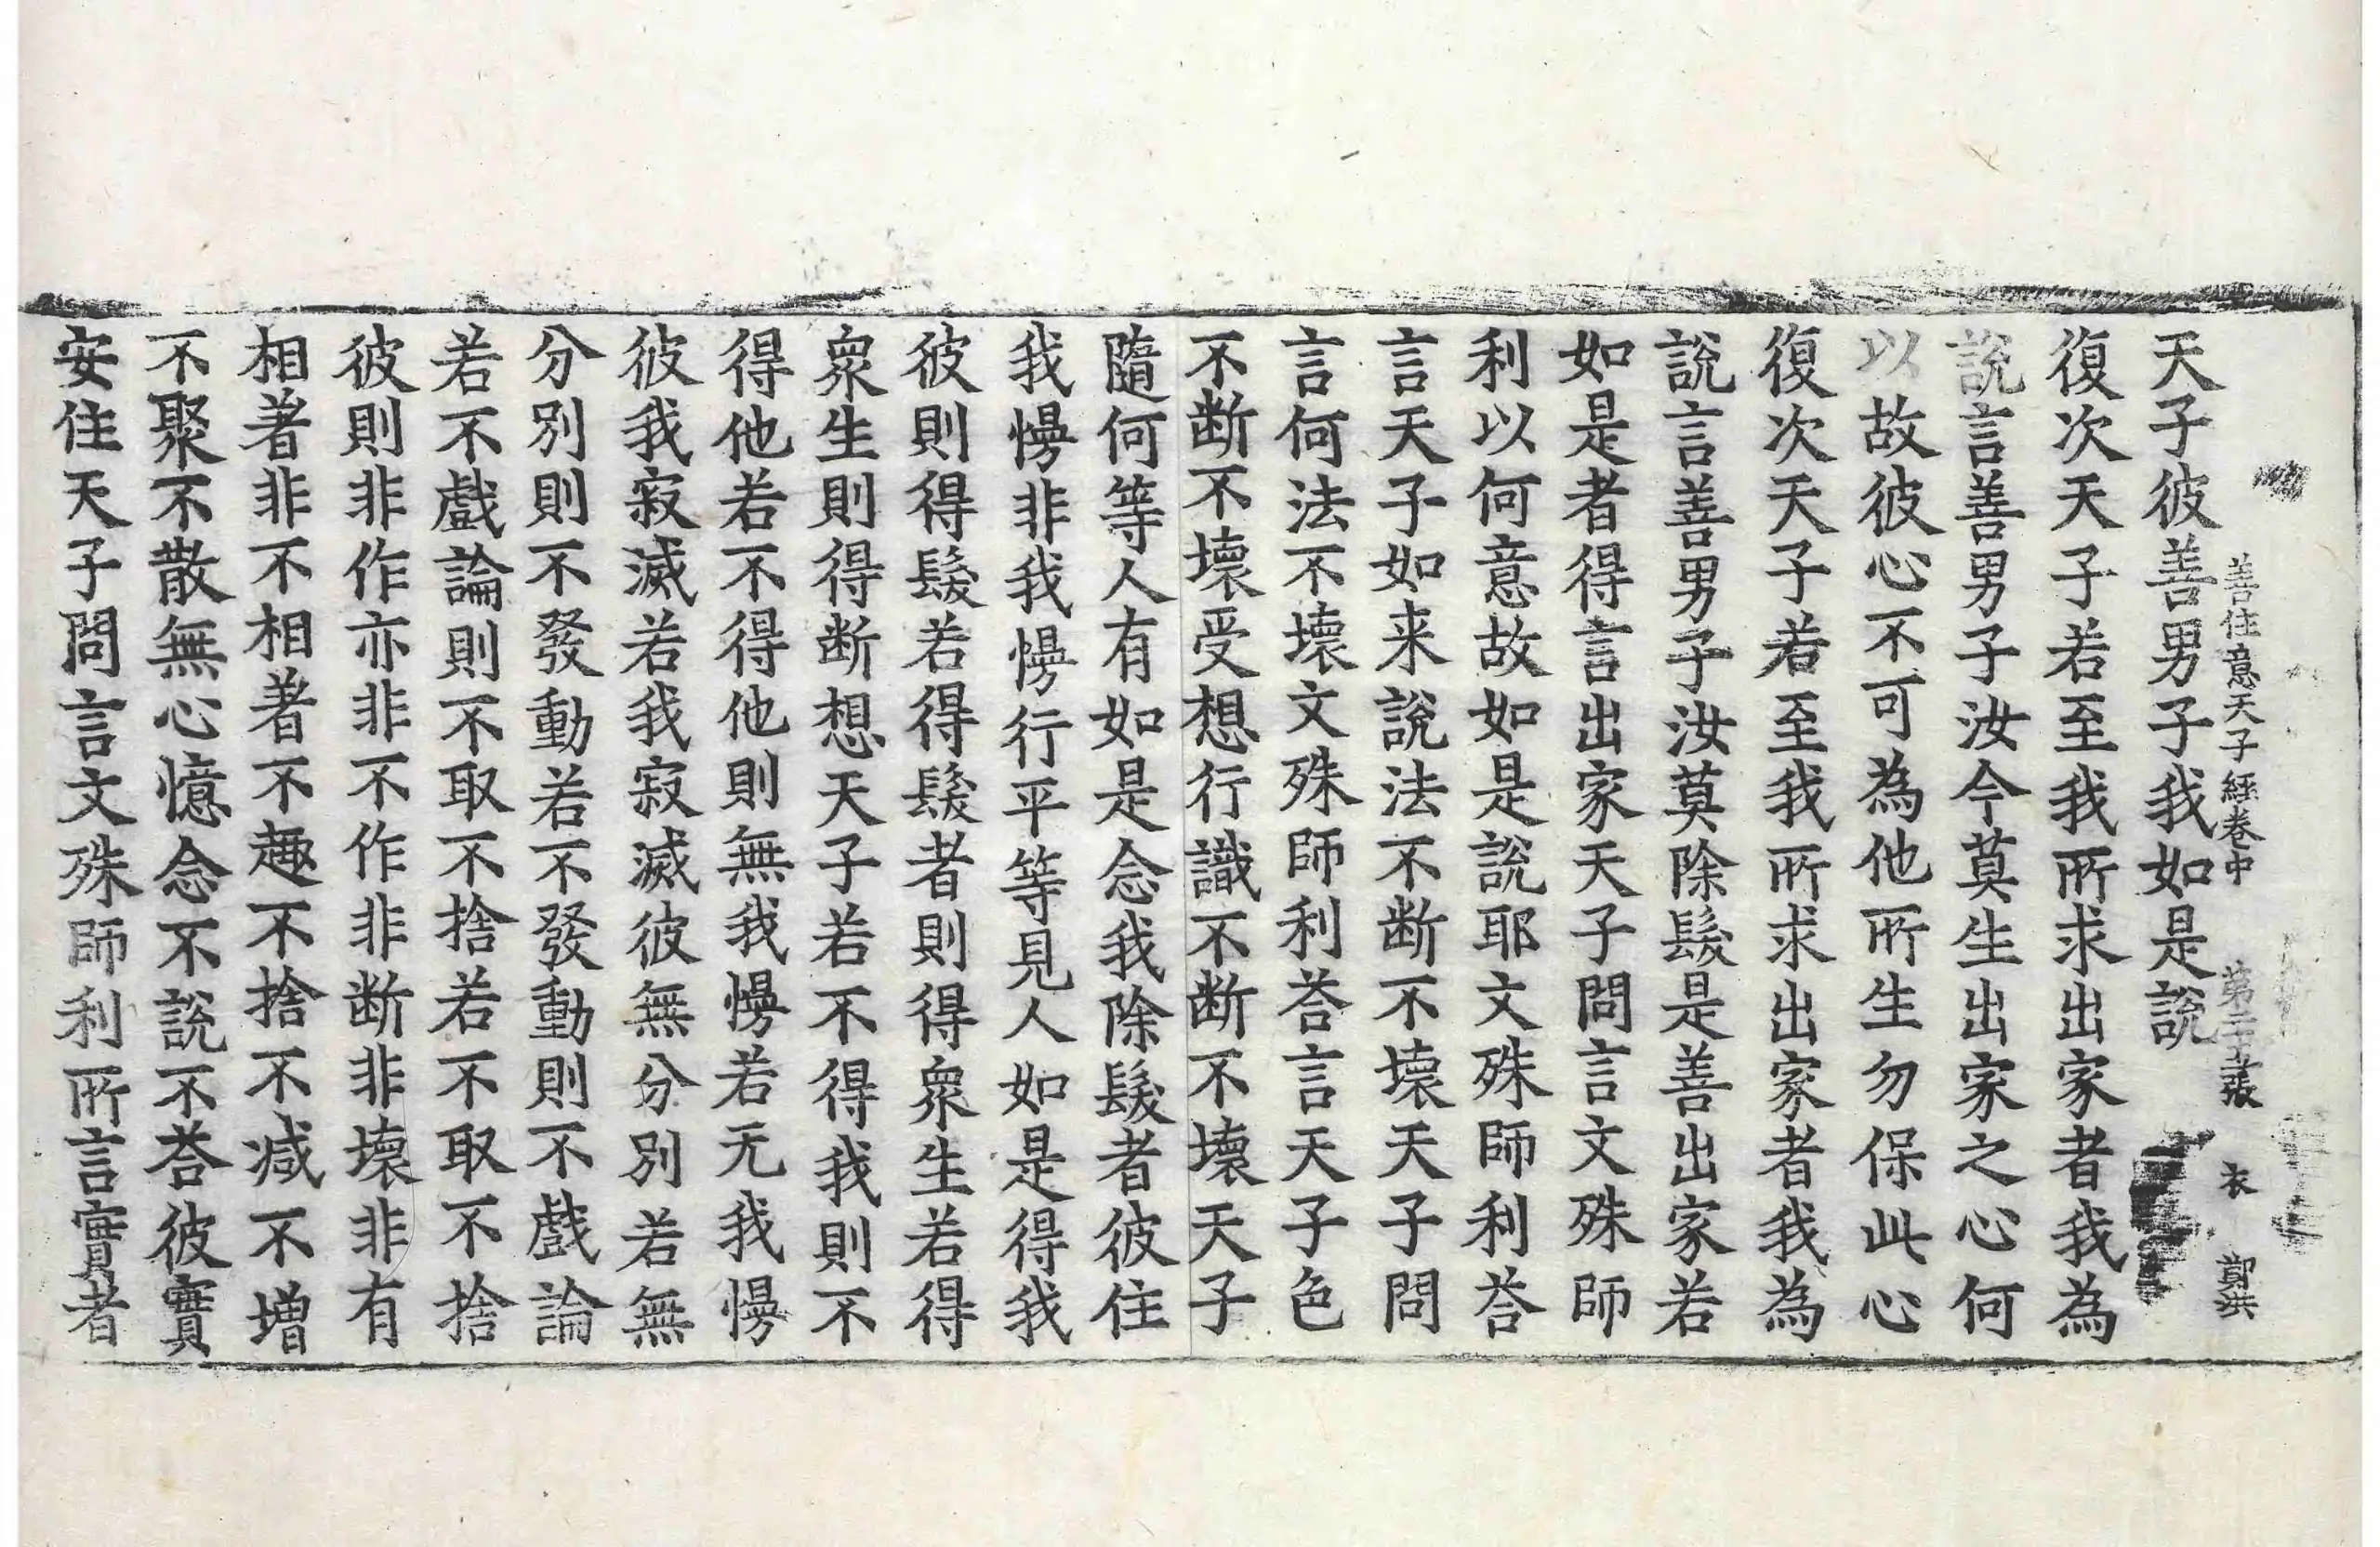 善住意天子經卷中　第二十張　衣　鄭洪
天子彼善男子我如是說
復次天子若至我所求出家者我為
說言善男子汝今莫生出家之心何
以故彼心不可為他所生勿保此心
復次天子若至我所求出家者我為
說言善男子汝莫除髮是善出家若
如是者得言出家天子問言文殊師
利以何意故如是說耶文殊師利荅
言天子如来說法不断不壞天子問
言何法不壞文殊師利荅言天子色
不断不壞受想行識不断不壞天子
隨何等人有如是念我除髮者彼住
我慢非我慢行平等見人如是得我
彼則得髮若得髮者則得衆生若得
衆生則得断想天子若不得我則不
得他若不得他則無我慢若无我慢
彼我寂滅若我寂滅彼無分別若無
分別則不發動若不發動則不戲論
若不戲論則不取不捨若不取不捨
彼則非作亦非不作非断非壞非有
相著非不相著不趣不捨不减不增
不聚不散無心憶念不說不荅彼實
安住天子問言文殊師利所言實者